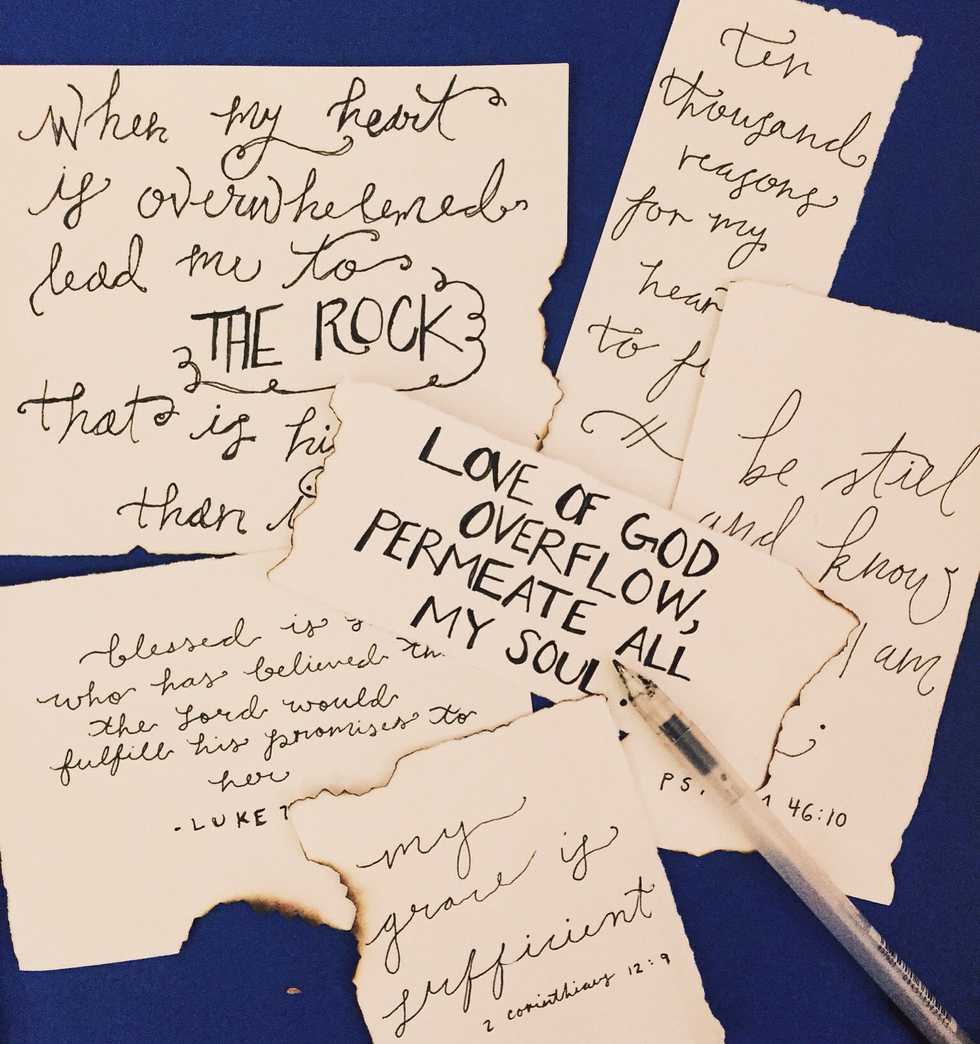 When my heart
is overwhelemed
lead me to
THE ROCK
that is
than
ten
thousand
reasons
for my
to
be still
and know
I am
PS. 46:10
LOVE OF GOD
OVERFLOW,
PERMEATE ALL
MY SOUL
blessed is
who has believed
the Lord would
fulfill his promises to
her
-LUKE
my
grace is
sufficient
2 corinthians 12:9